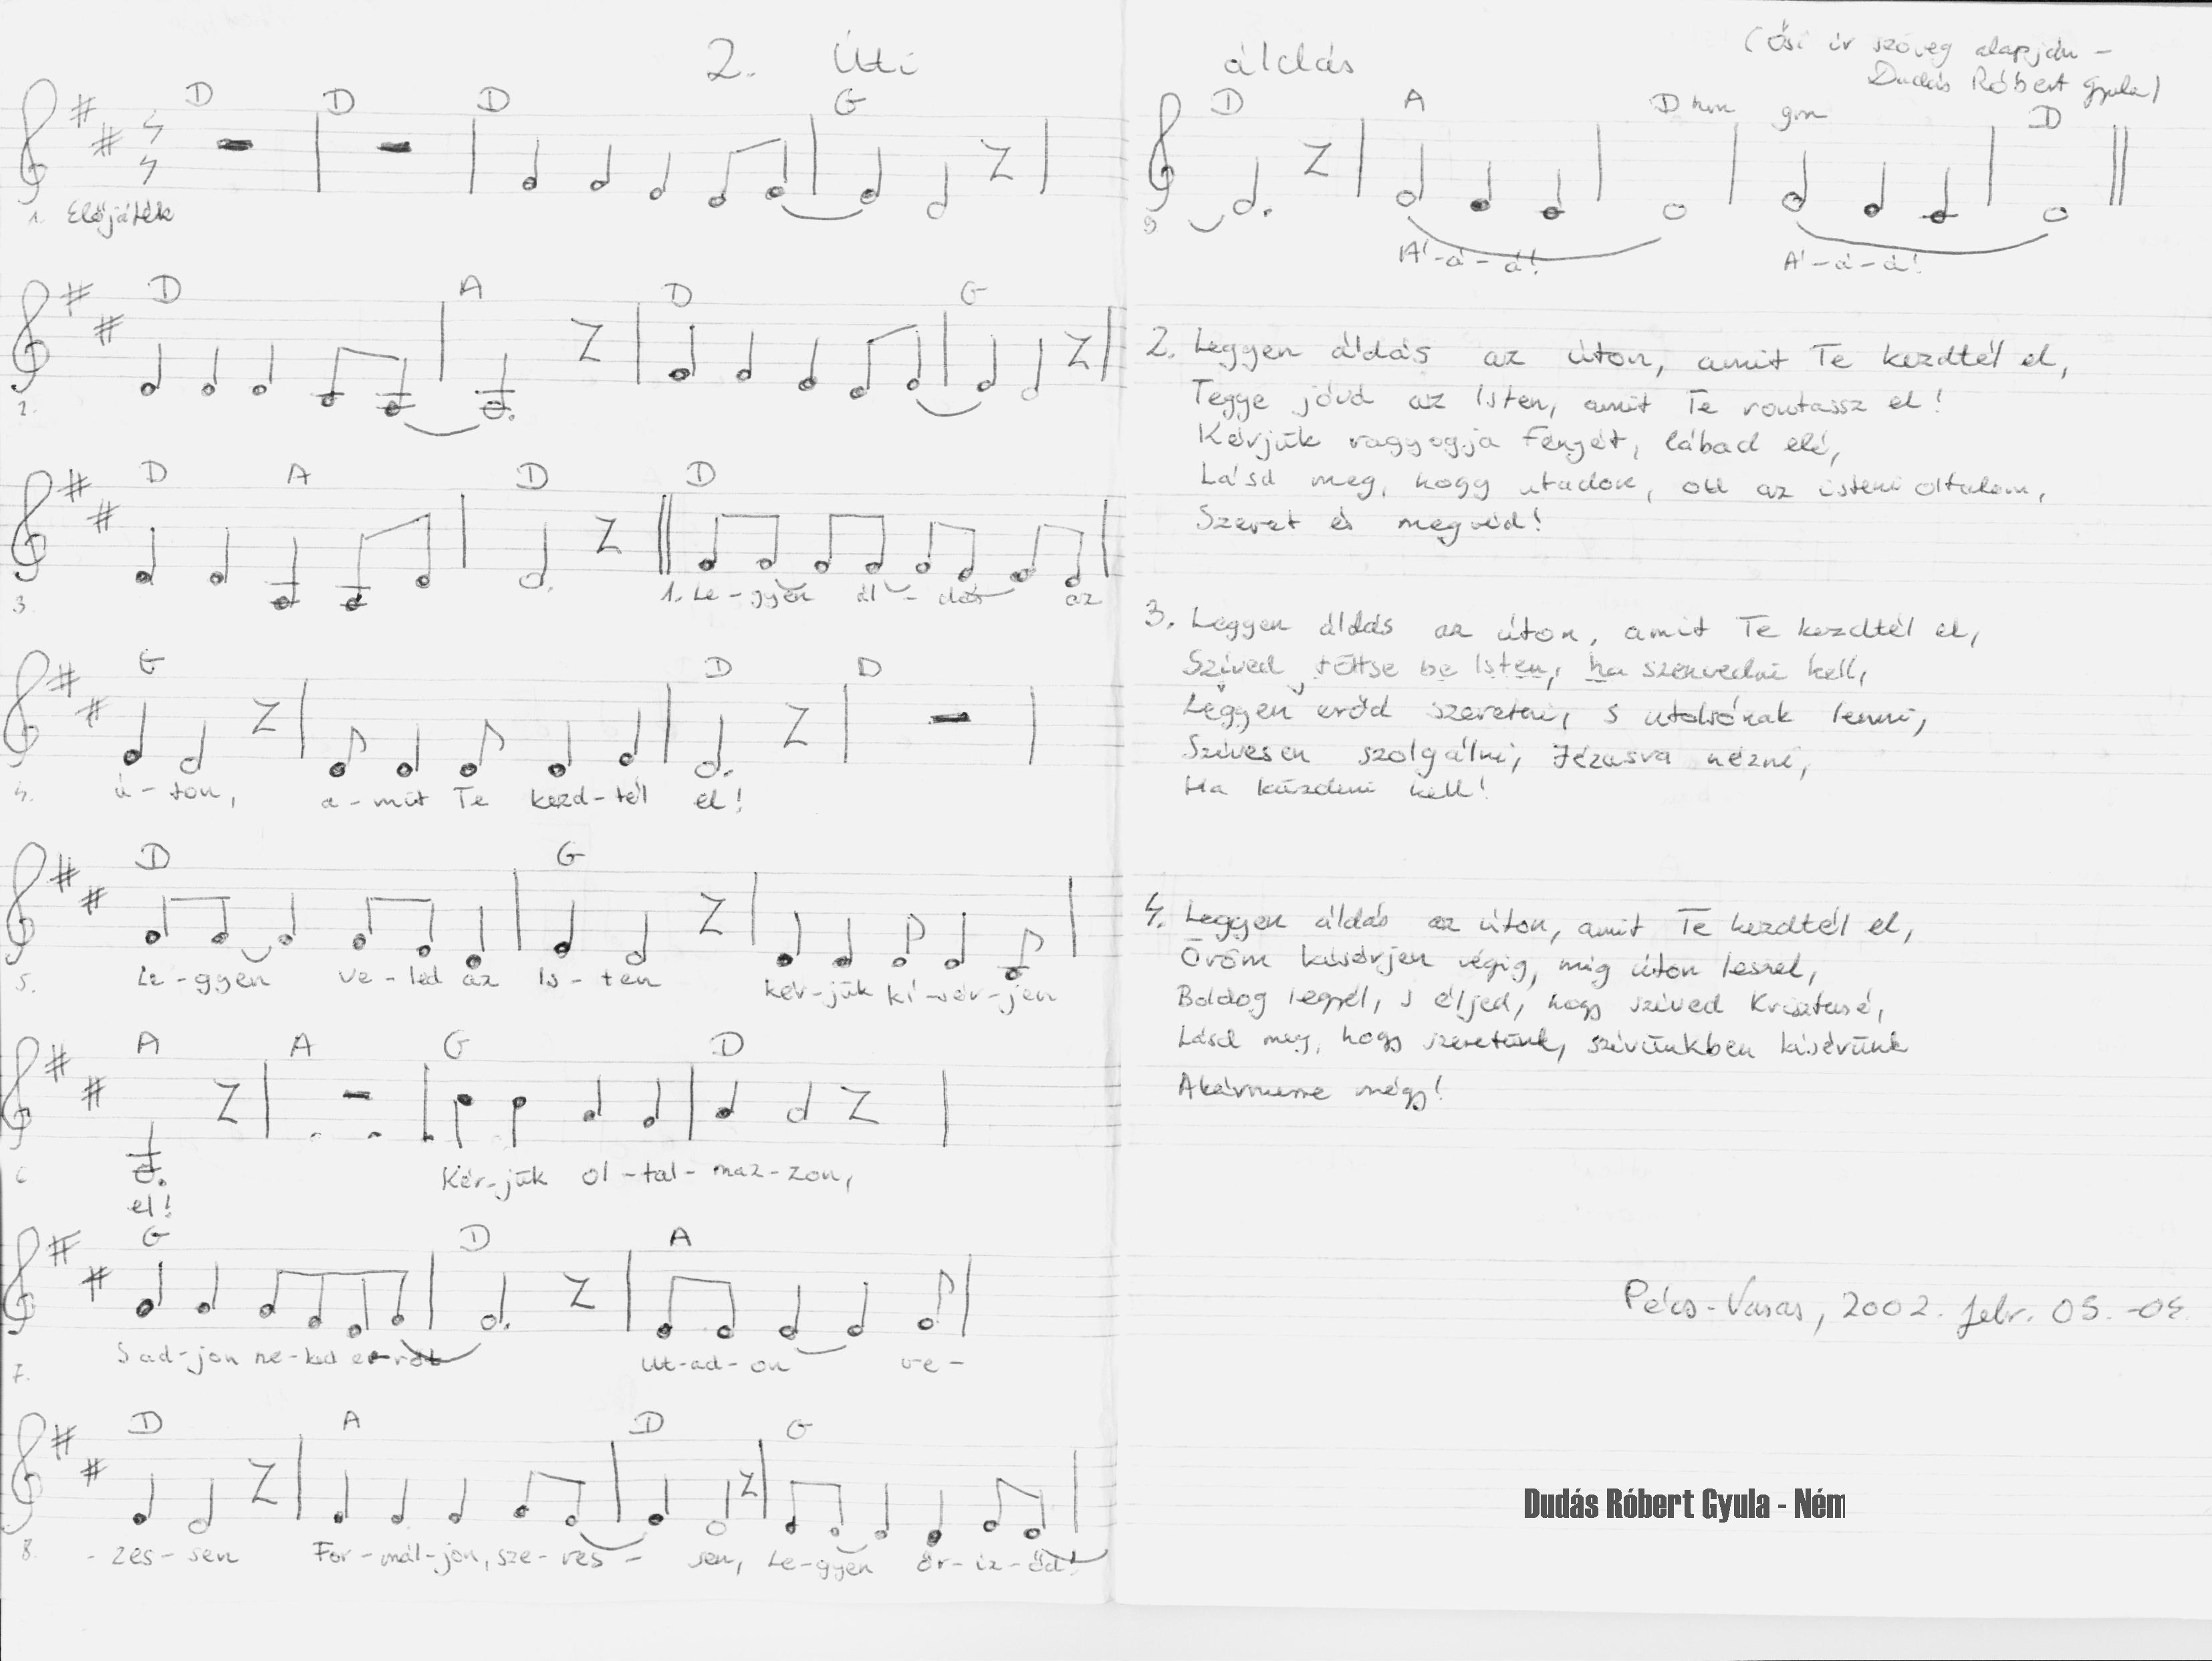 2. Úti áldás
(Ősi ír szöveg alapján -
Dudás Róbert Gyula)
D D D G
1. Előjáték
D A D G
2.
D A D D
3. 1. Le-gyen ál-dás az
G D D
4. ú-ton, a-mit Te kezd-tél el!
D G
5. Le-gyen ve-led az Is-ten kér-jük kí-sér-jen
A A G D
6 el! Kér-jük ol-tal-maz-zon,
G D A
7. Sad-jon ne-ked e-rőt Ut-ad-on ve-
D A D G
8. -zes-sen For-mál-jon, sze-res-sen, Le-gyen őr-iz-őd!
D A D hm gm D
9 Á-á-á! Á-á-á!
2. Legyen áldás az úton, amit Te kezdtél el,
Tegye jóvá az Isten, amit Te rontassz el!
Kérjük ragyogja Fényét, lábad elé,
Lásd meg, hogy utadon, ott az isteni oltalom,
Szeret és megvéd!
3. Legyen áldás az úton, amit Te kezdtél el,
Szíved töltse be Isten, ha szenvedni kell,
Legyen erőd szeretni, s utolsónak lenni,
Szívesen szolgálni, Jézusra nézni,
Ha küzdeni kell!
4. Legyen áldás az úton, amit Te kezdtél el,
Öröm kísérjen végig, míg úton leszel,
Boldog legyél, s éljed, hogy szíved Krisztusé,
Lásd meg, hogy szeretünk, szívünkben kísérünk
Akármerre mégy!
Pécs-Vasas, 2002. febr. 03.-04.
Dudás Róbert Gyula - Ném